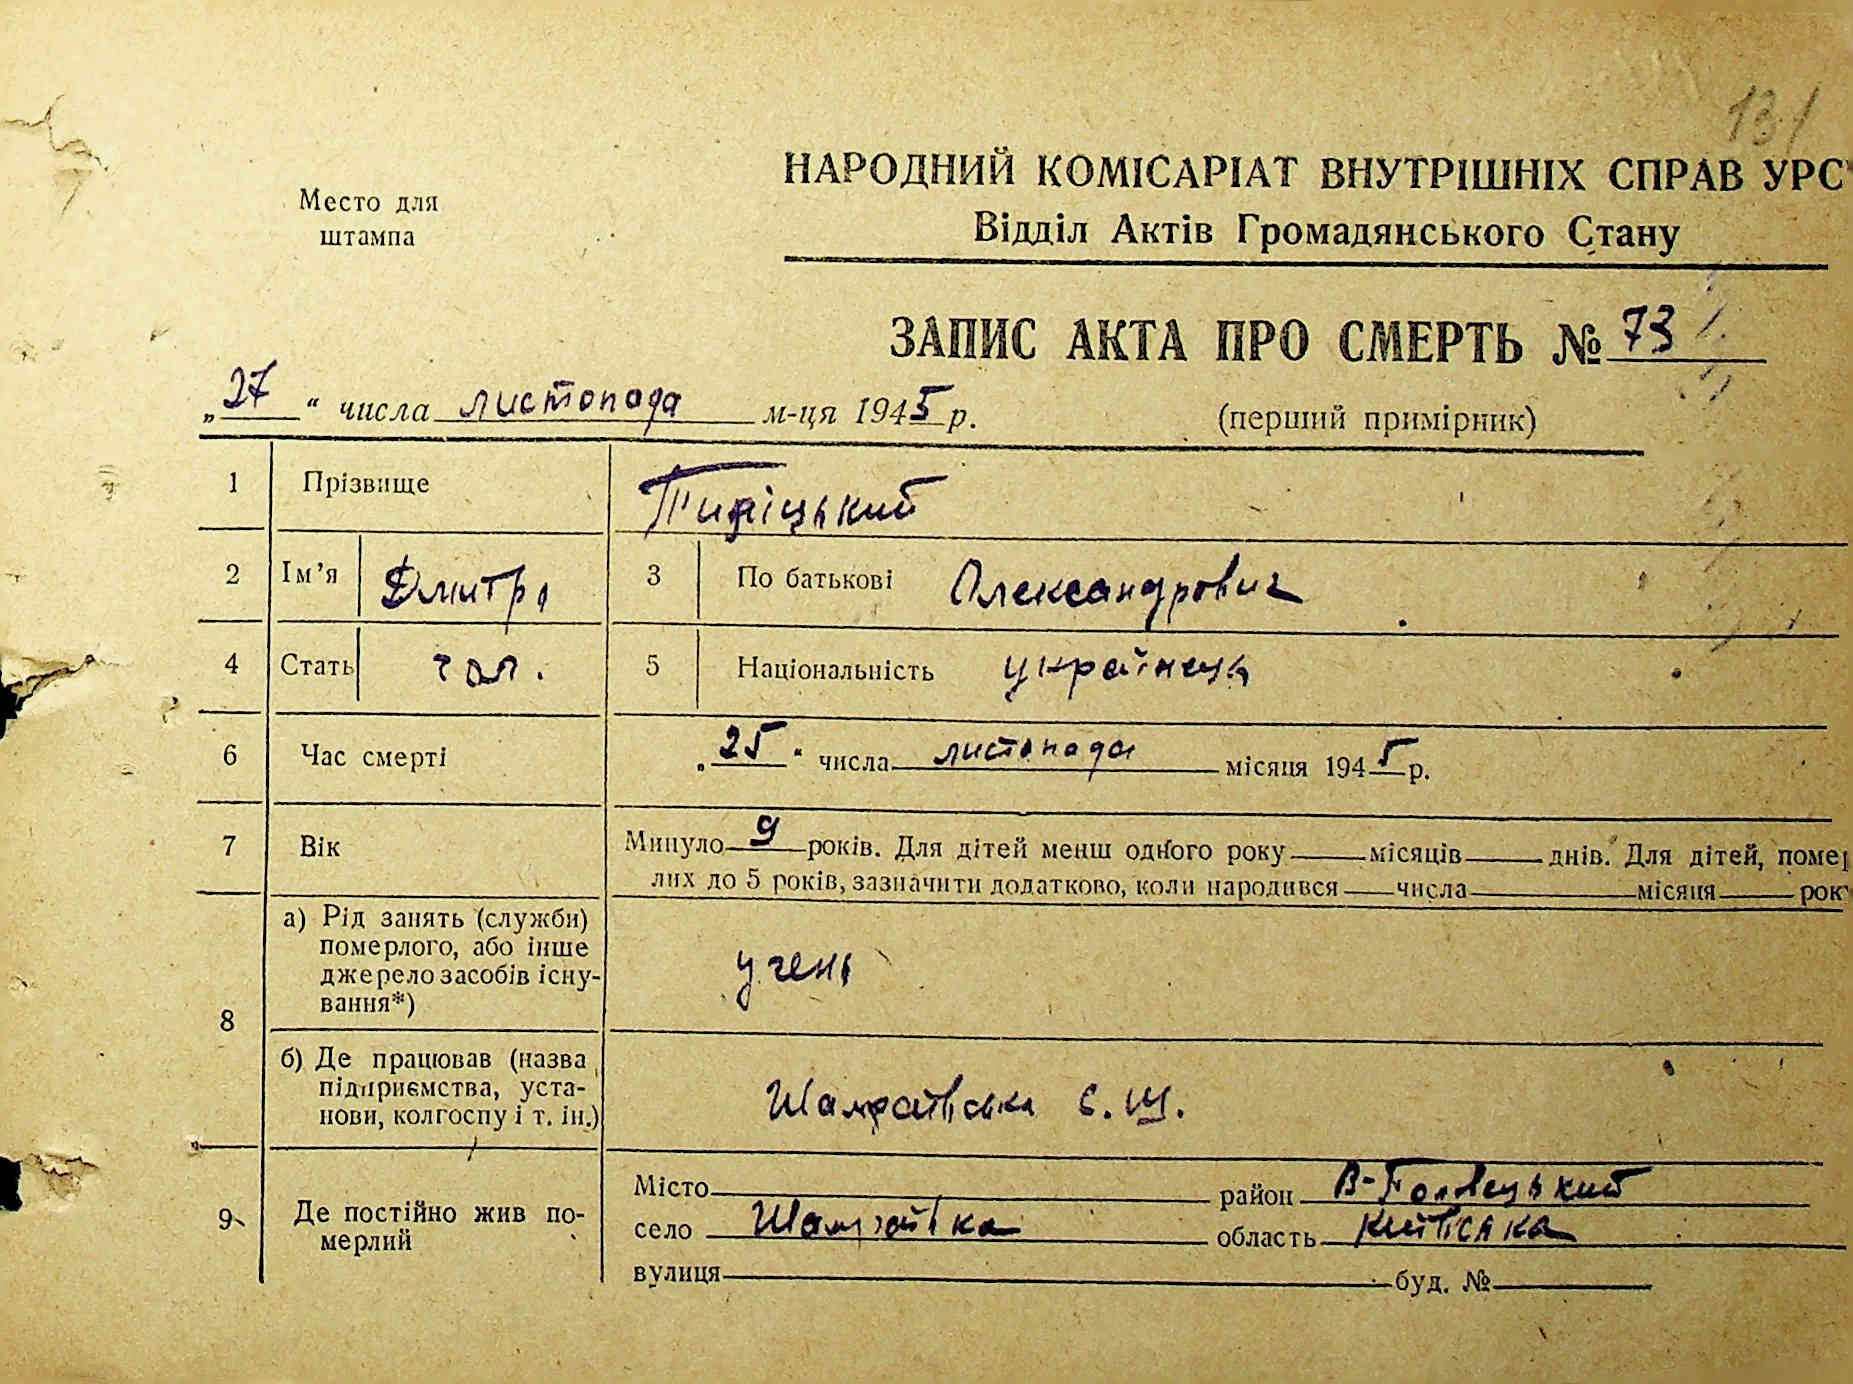 131
Место для
штампа
НАРОДНИЙ КОМІСАРІАТ ВНУТРІШНІХ СПРАВ УРС
Відділ Актів Громадянського Стану
ЗАПИС АКТА ПРО СМЕРТЬ № 73
„27“ числа листопада м-ця 1945 р.
(перший примірник)
1 Прізвище
2 Ім’я Дмитро 3 По батькові Олександрович
4 Стать чол. 5 Національність українець
6 Час смерті „25“ числа листопада місяця 1945 р.
7 Вік Минуло 9 років. Для дітей менш одного року місяців днів. Для дітей, помер
лих до 5 років, зазначити додатково, коли народився числа місяця рок
8 а) Рід занять (служби)
померлого, або інше
джерело засобів існу-
вання*)
учень
б) Де працював (назва
підприємства, уста-
нови, колгоспу і т. ін.)
Шамраївська с. ш.
9 Де постійно жив по-
мерлий
Місто район В-Половецький
село Шамраївка область Київська
вулиця буд. №